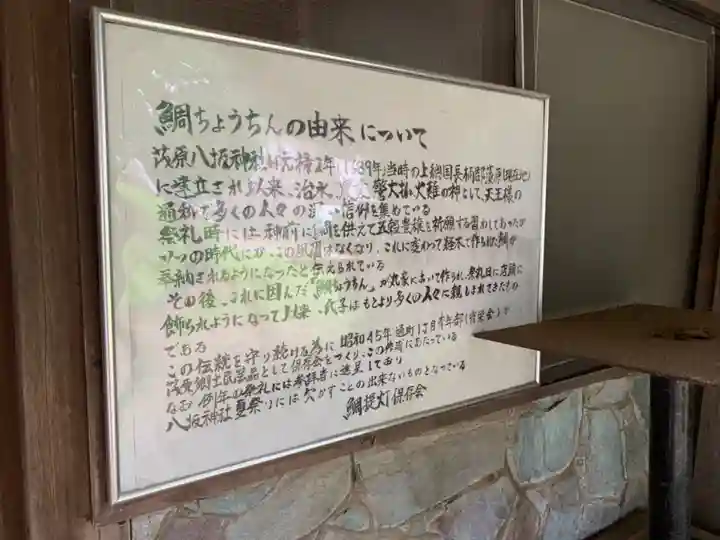 鯛ちょうちんの由来について
茂原八坂神社は元禄2年(1689年)当時の上総国長柄郡茂原(現在地)
に建立され以来、治水、火災の神として、天王様の
通称で多くの人々の深い信仰を集めている
祭礼時には神前に鯛を供えて五穀豊穣を祈願する習わしであったが
いつの時代にか、この風習はなくなり、これに変わって経木で作られた鯛が
奉納されるようになったと伝えられている
その後、これに因んだ「鯛ちょうちん」が氏家において作られ、祭礼日に店頭に
飾られようになって以来、氏子はもとより多くの人々に親しまれてきたもの
である
この伝統を守り続ける為に昭和45年通町1丁目本年部(有栄会)が
茂原郷土民芸品として保存会をつくり、この作成にあたっている
なお例年の祭礼には参拝者に進呈しており
八坂神社夏祭りには欠かすことの出来ないものとなっている
鯛提灯保存会